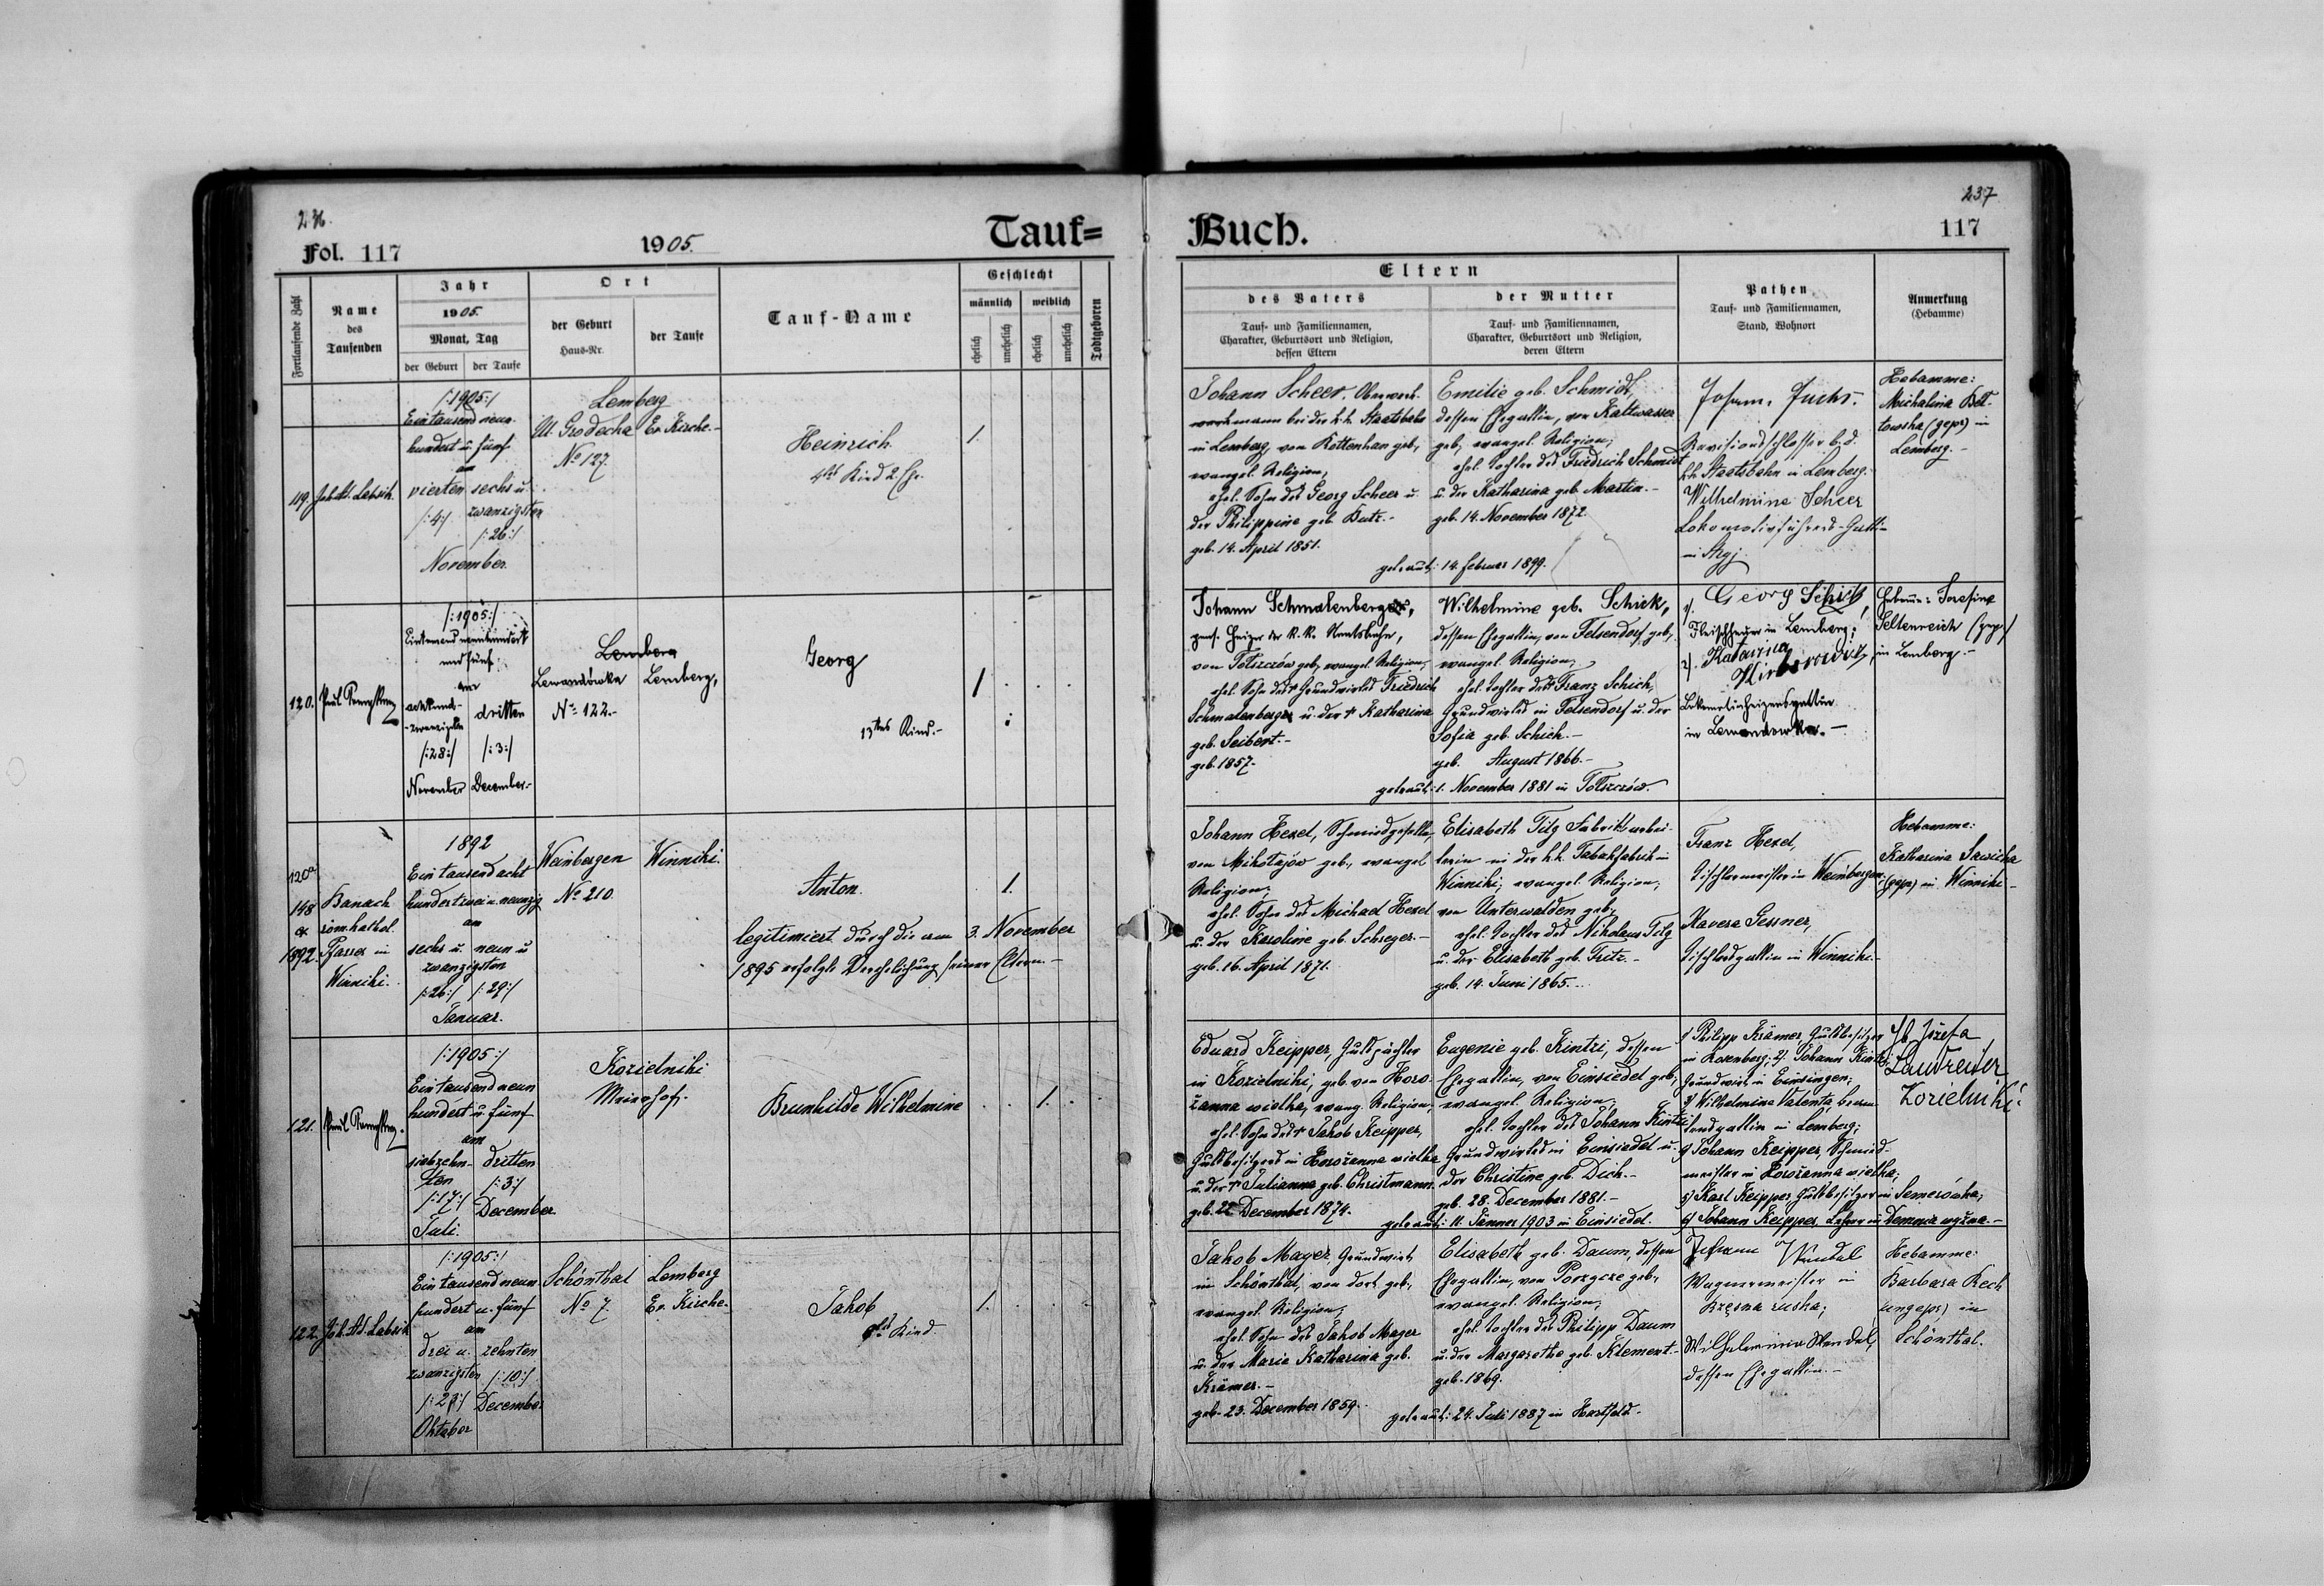 236.
Fol. 117
1905.
Tauf=
Fortlaufende Zahl
Name
des
Taufenden
Jahr
1905.
Monat, Tag
der Geburt
der Taufe
Ort
der Geburt
Haus-Nr.
der Taufe
Tauf-Name
Geschlecht
männlich
weiblich
ehelich
unehelich
ehelich
unehelich
Todtgeboren
119. Joh. Ad. Labsik.
/:1905:/
Ein tausend neun-
hundert u. fünf
am
vierten sechs u.
zwanzigsten
/:4:/
/:26:/
November.
Lemberg
Ul. Grodecka Ev. Kirche.-
No 127.
Heinrich
4tes Kind 2. Ehe.
1.
120. Paul
/:1905:/
Eintausend neunhundert
und fünf
am
achtund- dritten
-zwanzigsten
/:28:/ /:3:/
November December.-
Lemberg
Lewandówka Lemberg,
No 122.-
Georg
13tes Kind.-
1
120a
148
ex
1892.
Banach
römkathol.
Pfarrer in
Winniki.
1892
Ein tausend acht
hundert zwei u. neunzig
am
sechs u. neun u.
zwanzigsten
/:26:/ /:29:/
Januar.
Weinbergen Winniki.
No 210.
Anton.
1.
legitimiert durch die am 3. November
1895 erfolgte Verehelichung seiner Eltern.-
121.
/:1905:/
Ein tausend neun
hundert u. fünf
am
siebzehn- dritten
ten /:3:/
/:17:/ December.
Juli.
Kozielniki
Meierhof.
Brunhilde Wilhelmine
1.
122. Joh. Ad. Labsik
/:1905:/
Ein tausend neun
hundert u. fünf
am
drei u. zehnten
zwanzigsten /:10:/
/:23:/ December
Oktober
Schönthal Lemberg
No 7. Ev. Kirche.
Jakob
Kind
1.
237
Buch.
117
Eltern
des Vaters
Tauf- und Familiennamen,
Charakter, Geburtsort und Religion,
dessen Eltern
der Mutter
Tauf- und Familiennamen,
Charakter, Geburtsort und Religion,
deren Eltern
Pathen
Tauf- und Familiennamen,
Stand, Wohnort
Anmerkung
(Hebamme)
Johann Scheer, Oberwerk-
mann bei der k.k. Staatsbahn
in Lemberg, von Rottenhan geb.,
evangel. Religion,
ehel. Sohn des Georg Scheer u.
der Philippine geb. Butz.-
geb. 14. April 1851.
Emilie geb. Schmidt,
dessen Ehegattin, von Kaltwasser
geb., evangel. Religion;
ehel. Tochter des Friedrich Schmidt
u. der Katharina geb. Martin.-
geb. 14. November 1872.
getraut: 14. Februar 1899.
Johann Fuchs.
Revisionsschlosser b. d.
k.k. Staatsbahn in Lemberg.
Wilhelmine Scheer
Lokomotivführers-Gattin
in Stryj
Hebamme:
Michalina
(gepr.) in
Lemberg.-
Johann Schmalenberger,
Heizer der k.k. Staatsbahn,
von geb., evangel. Religion;
ehel. Sohn des † Grundwirtes Friedrich
Schmalenberger u. der † Katharina
geb. Seibert.-
geb. 1857.-
Wilhelmine geb. Schick,
dessen Ehegattin, von Felsendorf geb.,
evangel. Religion,
ehel. Tochter des † Franz Schick,
Grundwirtes in Felsendorf u. der
Sofia geb. Schick.-
geb. August 1866.-
getraut: 1. November 1881 in
1). Georg Schick
Fleischhauer in Lemberg;
2). Katarina
in Lewandowka.-
Hebamme: Josefine
Seltenreich (gepr.)
in Lemberg.-
Johann Hexel, Schmiedgeselle,
von Mikołajów geb., evangel.
Religion;
ehel. Sohn des Michael Hexel
u. der Karoline geb. Schreyer.-
geb. 16. April 1871.
Elisabeth Tilg Fabriksarbei-
terin in der k.k. Tabakfabrik in
Winniki; evangel. Religion,
von Unterwalden geb.,
ehel. Tochter des Nikolaus Tilg
u. der Elisabeth geb. Fritz.-
geb. 14. Juni 1865.-
Franz Hexel,
Tischlermeister in Weinbergen.
Xavera Gessner,
Tischlersgattin in Winniki.-
Hebamme:
Katharina Sawicka
(gepr.) in Winniki-
Eduard Keipper, Gutspächter
in Kozielniki, geb. von Horo-
żanna wielka, evang. Religion,
ehel. Sohn des † Jakob Keipper,
Gutsbesitzers in Horożanna wielka
u. der † Julianna geb. Christmann.
geb. 22 December 1874.
Eugenie geb. Kintzi, dessen
Ehegattin, von Einsiedel geb.,
evangel. Religion;
ehel. Tochter des Johann Kintzi
Grundwirtes in Einsiedel u.
der Christine geb. Dick.-
geb. 28. December 1881.-
getraut: 11. Jänner 1903 in Einsiedel.
1) Philipp Krämer, Gutsbesitzer
in ; 2) Johann Kintzi
Grundwirt in Einsingen;
3) Wilhelmine Valenta, beam-
tensgattin in Lemberg;
4) Johann Keipper, Schmied-
meister in Horożanna wielka;
5) Karl Keipper, Gutsbesitzer in Semerówka;
6) Johann Keipper, Lehrer in Demnia wyżna.-
Józefa
Landreiter
Kozielniki
Jakob Mayer, Grundwirt
in Schönthal, von dort geb.,
evangel. Religion;
ehel. Sohn des Jakob Mayer
u. der Maria Katharina geb.
Krämer.-
geb. 23. December 1859.
Elisabeth geb. Daum, dessen
Ehegattin, von Porzgcze geb.,
evangel. Religion,
ehel. Tochter des Philipp Daum
u. der Margaretha geb. Klement.-
geb. 1869.
getraut: 24. Juli 1887 in Hartfeld.-
Johann Wendel
Wagnermeister in
ruska;
Wilhelmine Wendel,
dessen Ehegattin.-
Hebamme:
Barbara Rech
(ungepr.) in
Schönthal.